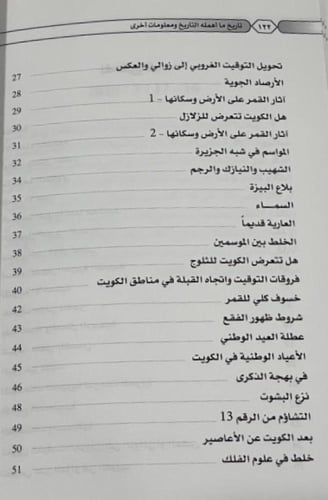 ١٢٢ تاريخ ما أهمله التاريخ ومعلومات أخرى
تحويل التوقيت الغروبي إلى زوالي والعكس 27
الأرصاد الجوية 28
آثار القمر على الأرض وسكانها - 1 29
هل الكويت تتعرض للزلازل 30
آثار القمر على الأرض وسكانها - 2 31
المواسم في شبه الجزيرة 32
الشهيب والنيازك والرجم 34
بلاع البيزة 35
السمـــاء 36
العارية قديماً 37
الخلط بين الموسمين 38
هل تتعرض الكويت للثلوج 39
فروقات التوقيت واتجاه القبلة في مناطق الكويت 40
خسوف كلي للقمر 42
شروط ظهور الفقع 43
عطلة العيد الوطني 44
الأعياد الوطنية في الكويت 45
في بهجة الذكرى 46
نزع البشوت 48
التشاؤم من الرقم 13 49
بعد الكويت عن الأعاصير 50
خلط في علوم الفلك 51